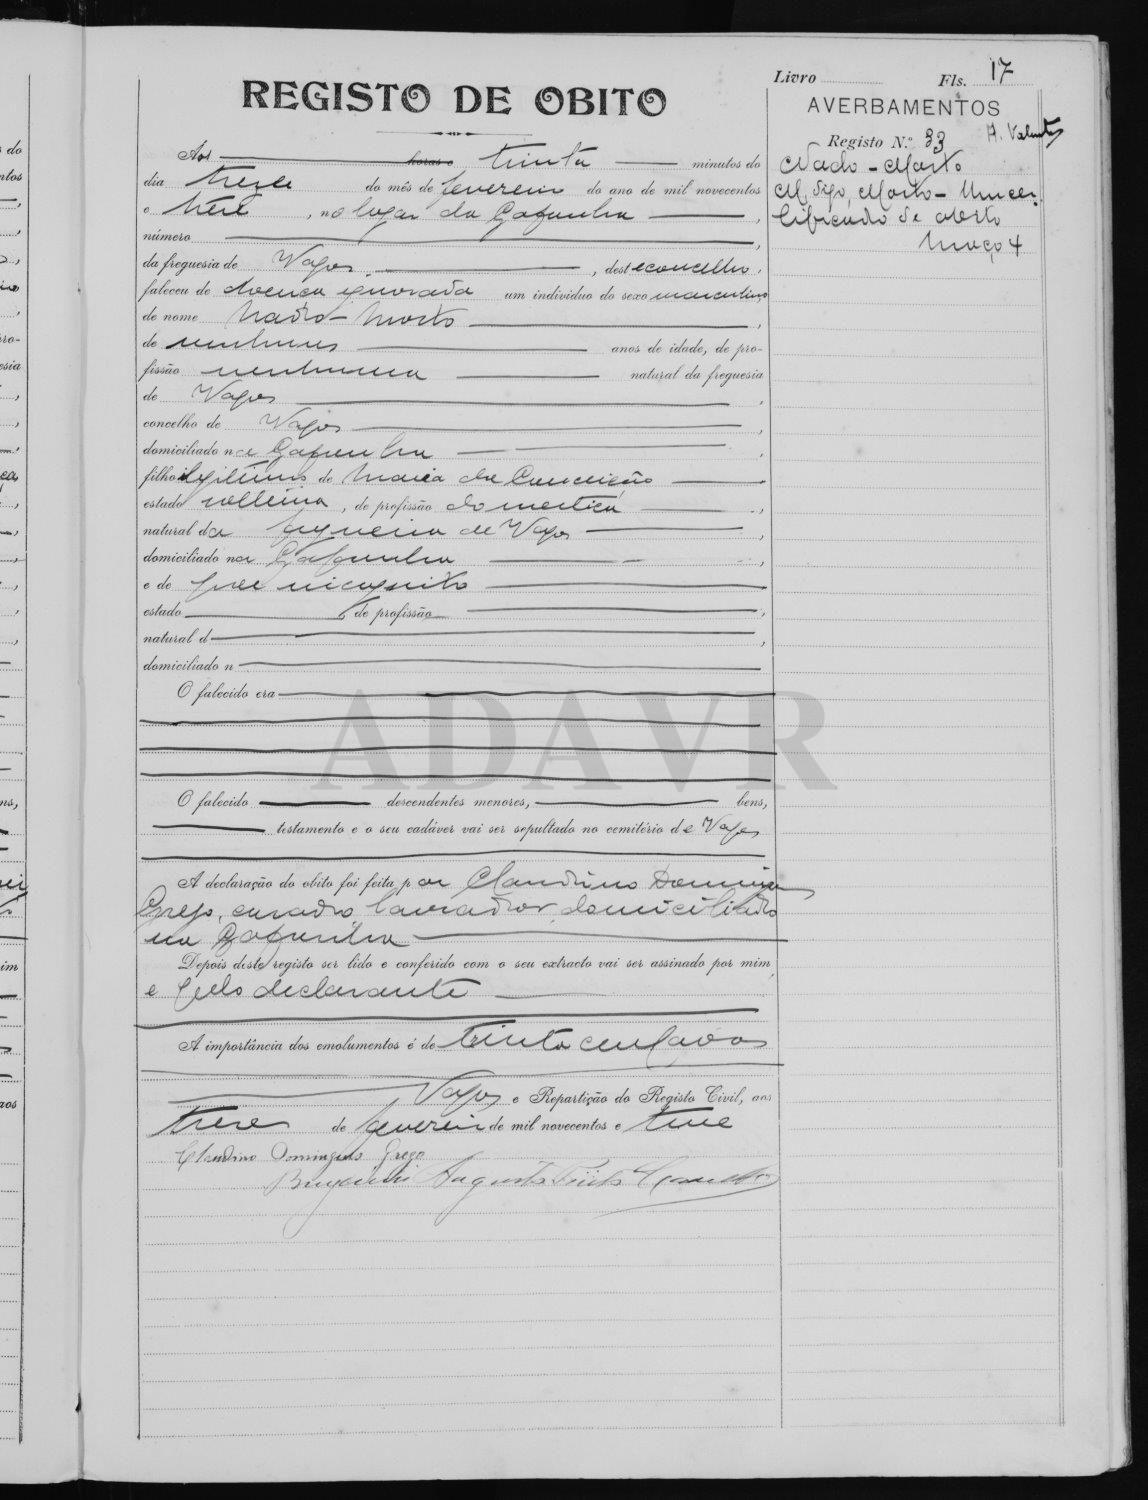 Livro Fls. 17
REGISTO DE OBITO
AVERBAMENTOS
Registo N.º 33
Nado-Morto
Morto-
de obito
Maço 4
Aos horas e trinta minutos do
dia treze do mês de fevereiro do ano de mil novecentos
e treze, no lugar da Gafanha,
número,
da freguesia de Vagos, deste concelho,
faleceu de doença ignorada um individuo do sexo masculino
de nome Nado-Morto,
de nenhuns anos de idade, de pro-
fissão nenhuma natural da freguesia
de Vagos,
concelho de Vagos,
domiciliado na Gafanha,
filho ilegitimo de Maria da Conceição
estado solteira, de profissão domestica,
natural da freguesia de Vagos,
domiciliado na Gafanha,
e de pae incognito
estado, de profissão,
natural d,
domiciliado n
O falecido era
ADAVR
O falecido descendentes menores, bens,
testamento e o seu cadáver vai ser sepultado no cemitério de Vagos
A declaração do obito foi feita por Claudino Domingues
Grego, casado, lavrador, domiciliado
na Gafanha
Depois deste registo ser lido e conferido com o seu extracto vai ser assinado por mim,
e pelo declarante
A importância dos emolumentos é de trinta centavos
Vagos e Repartição do Registo Civil, aos
treze de fevereiro de mil novecentos e treze
Claudino Domingues Grego
Augusto